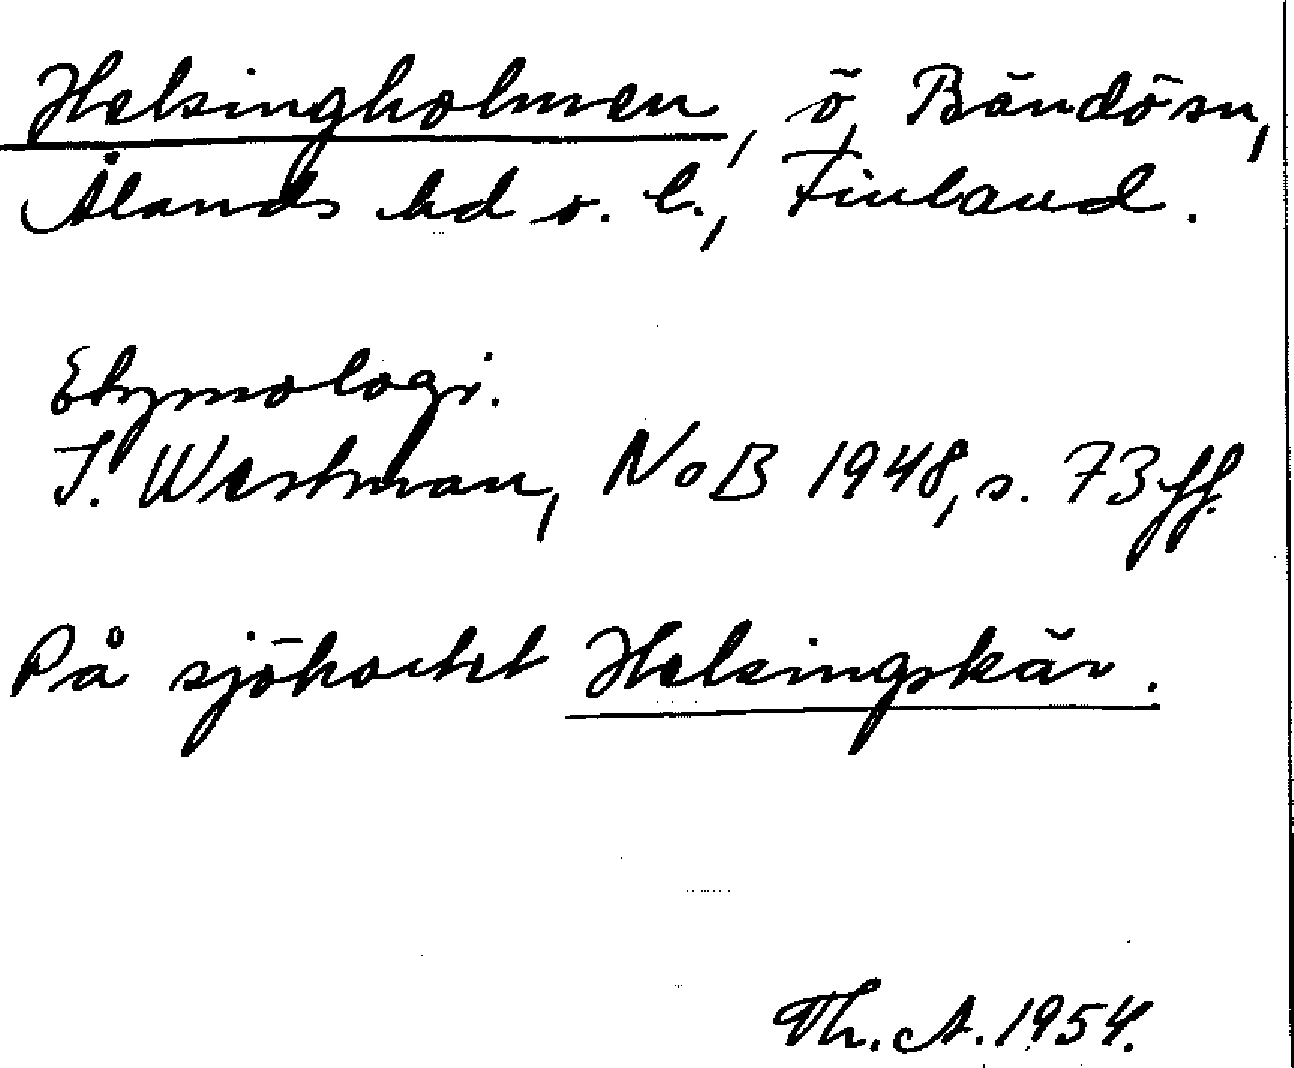 Helsingholmen, ö, Bändösn,
Ålands hd o. l., Finland.
Etymologi.
I. Westman, NoB 1948, s. 73 ff.
På sjökortet Helsingskär.
Th. A. 1954.